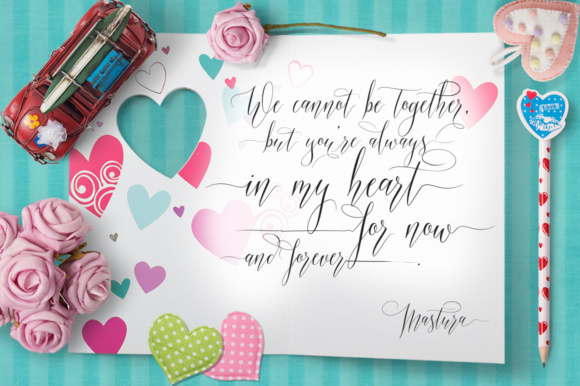 We cannot be together,
but you're always
in my heart
for now
and forever .
Mastura